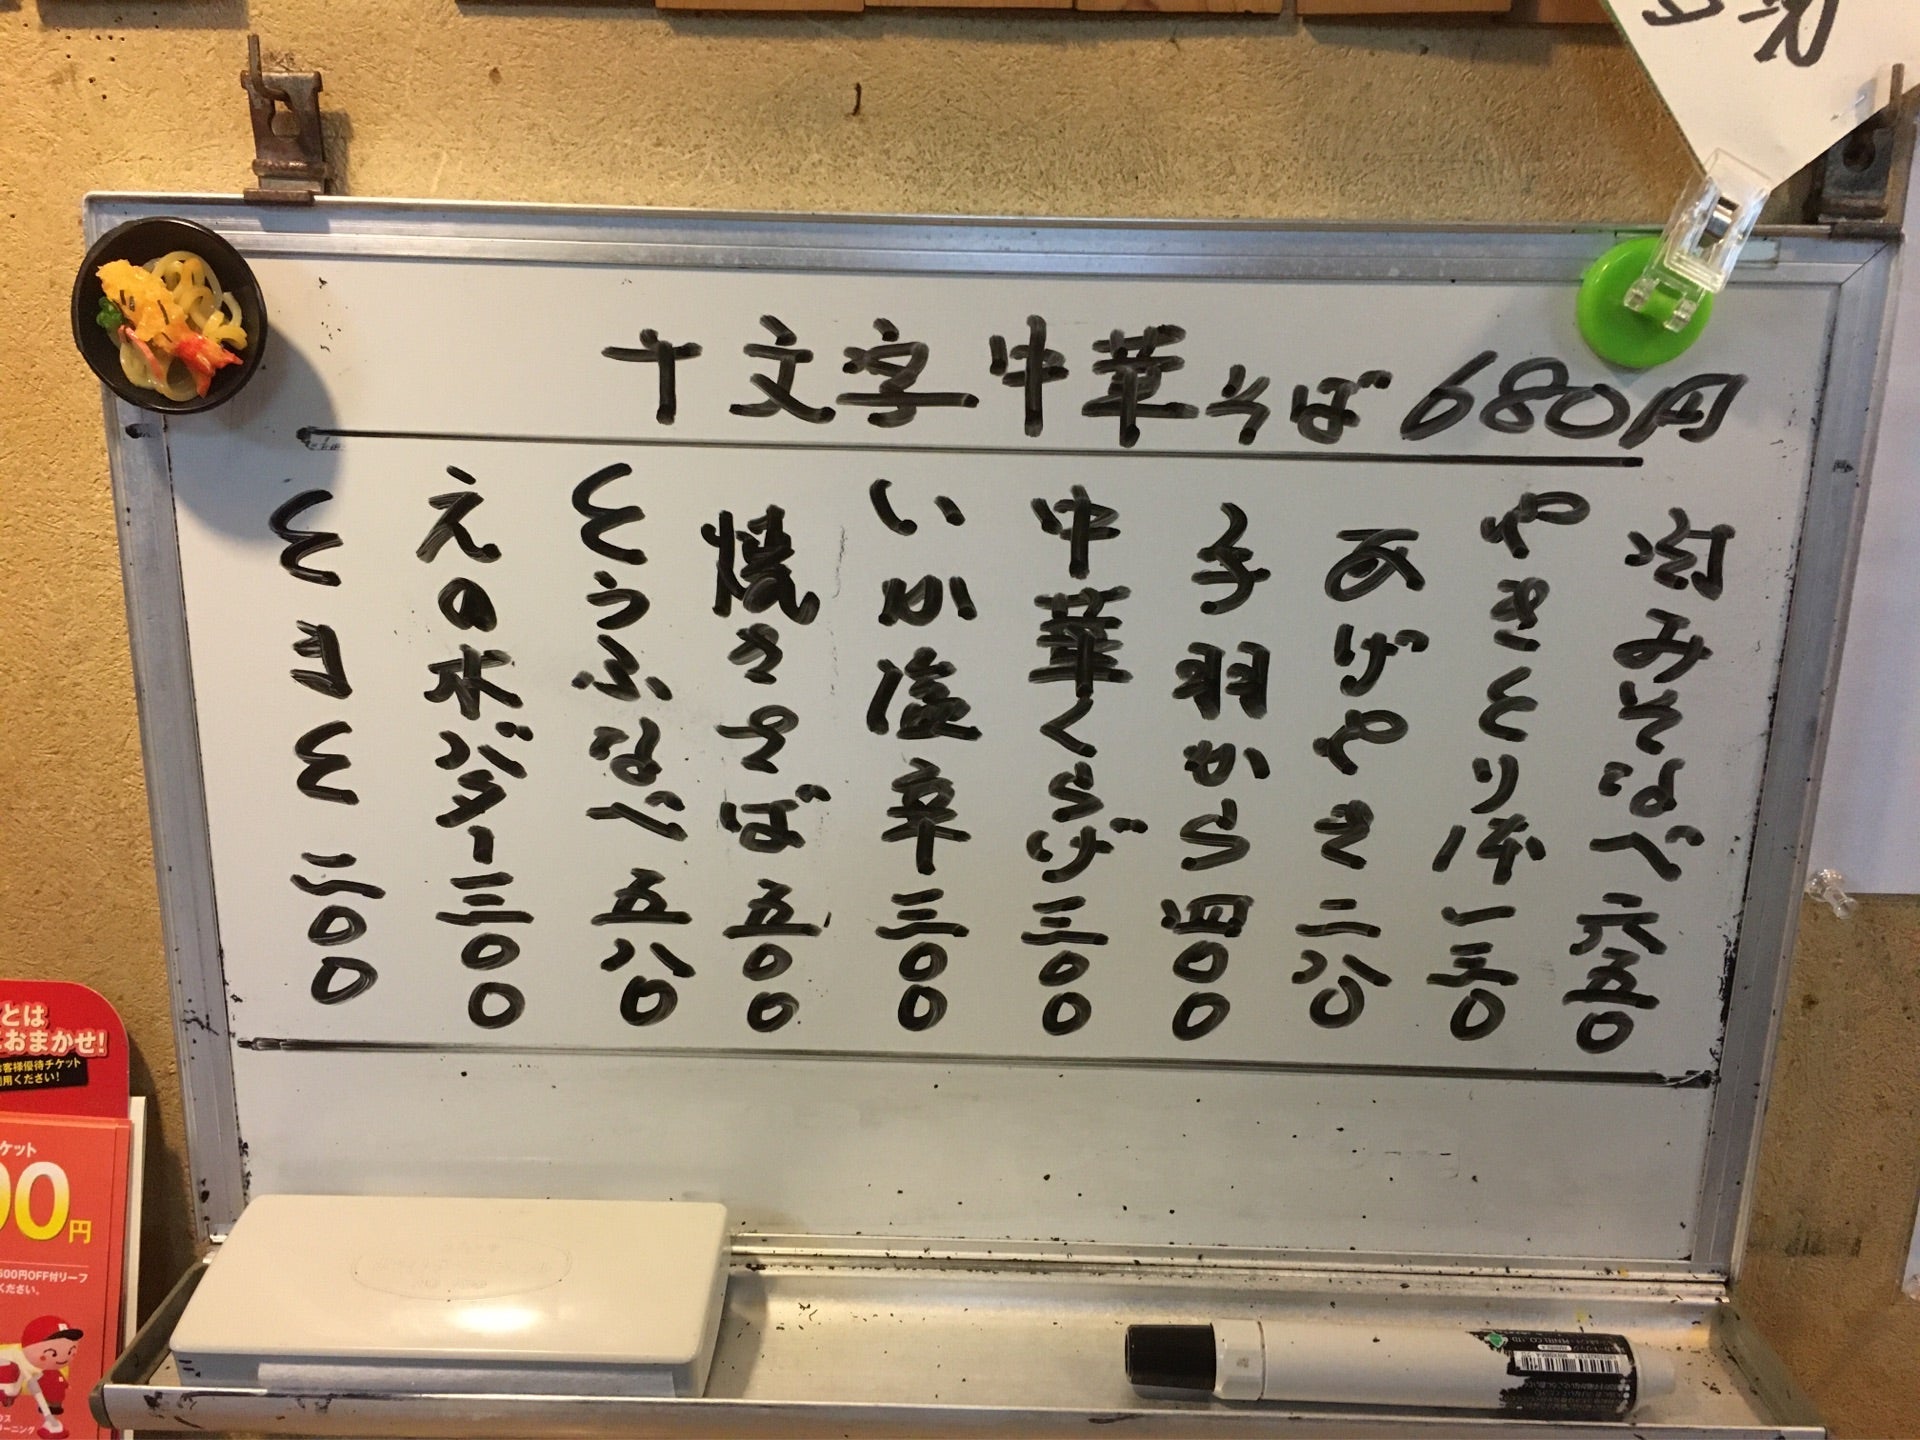 十文字中華そば680円
肉みそなべ六五〇
やきとり1本一三〇
あげやき二八〇
手羽から四〇〇
中華くらげ三〇〇
いか塩辛三〇〇
焼きさば五〇〇
とうふなべ五八〇
えの水バター三〇〇
とまと二〇〇
とは
おまかせ!
お客様優待チケット
用ください!
ケット
00円
500円OFF付リーフ
ください。